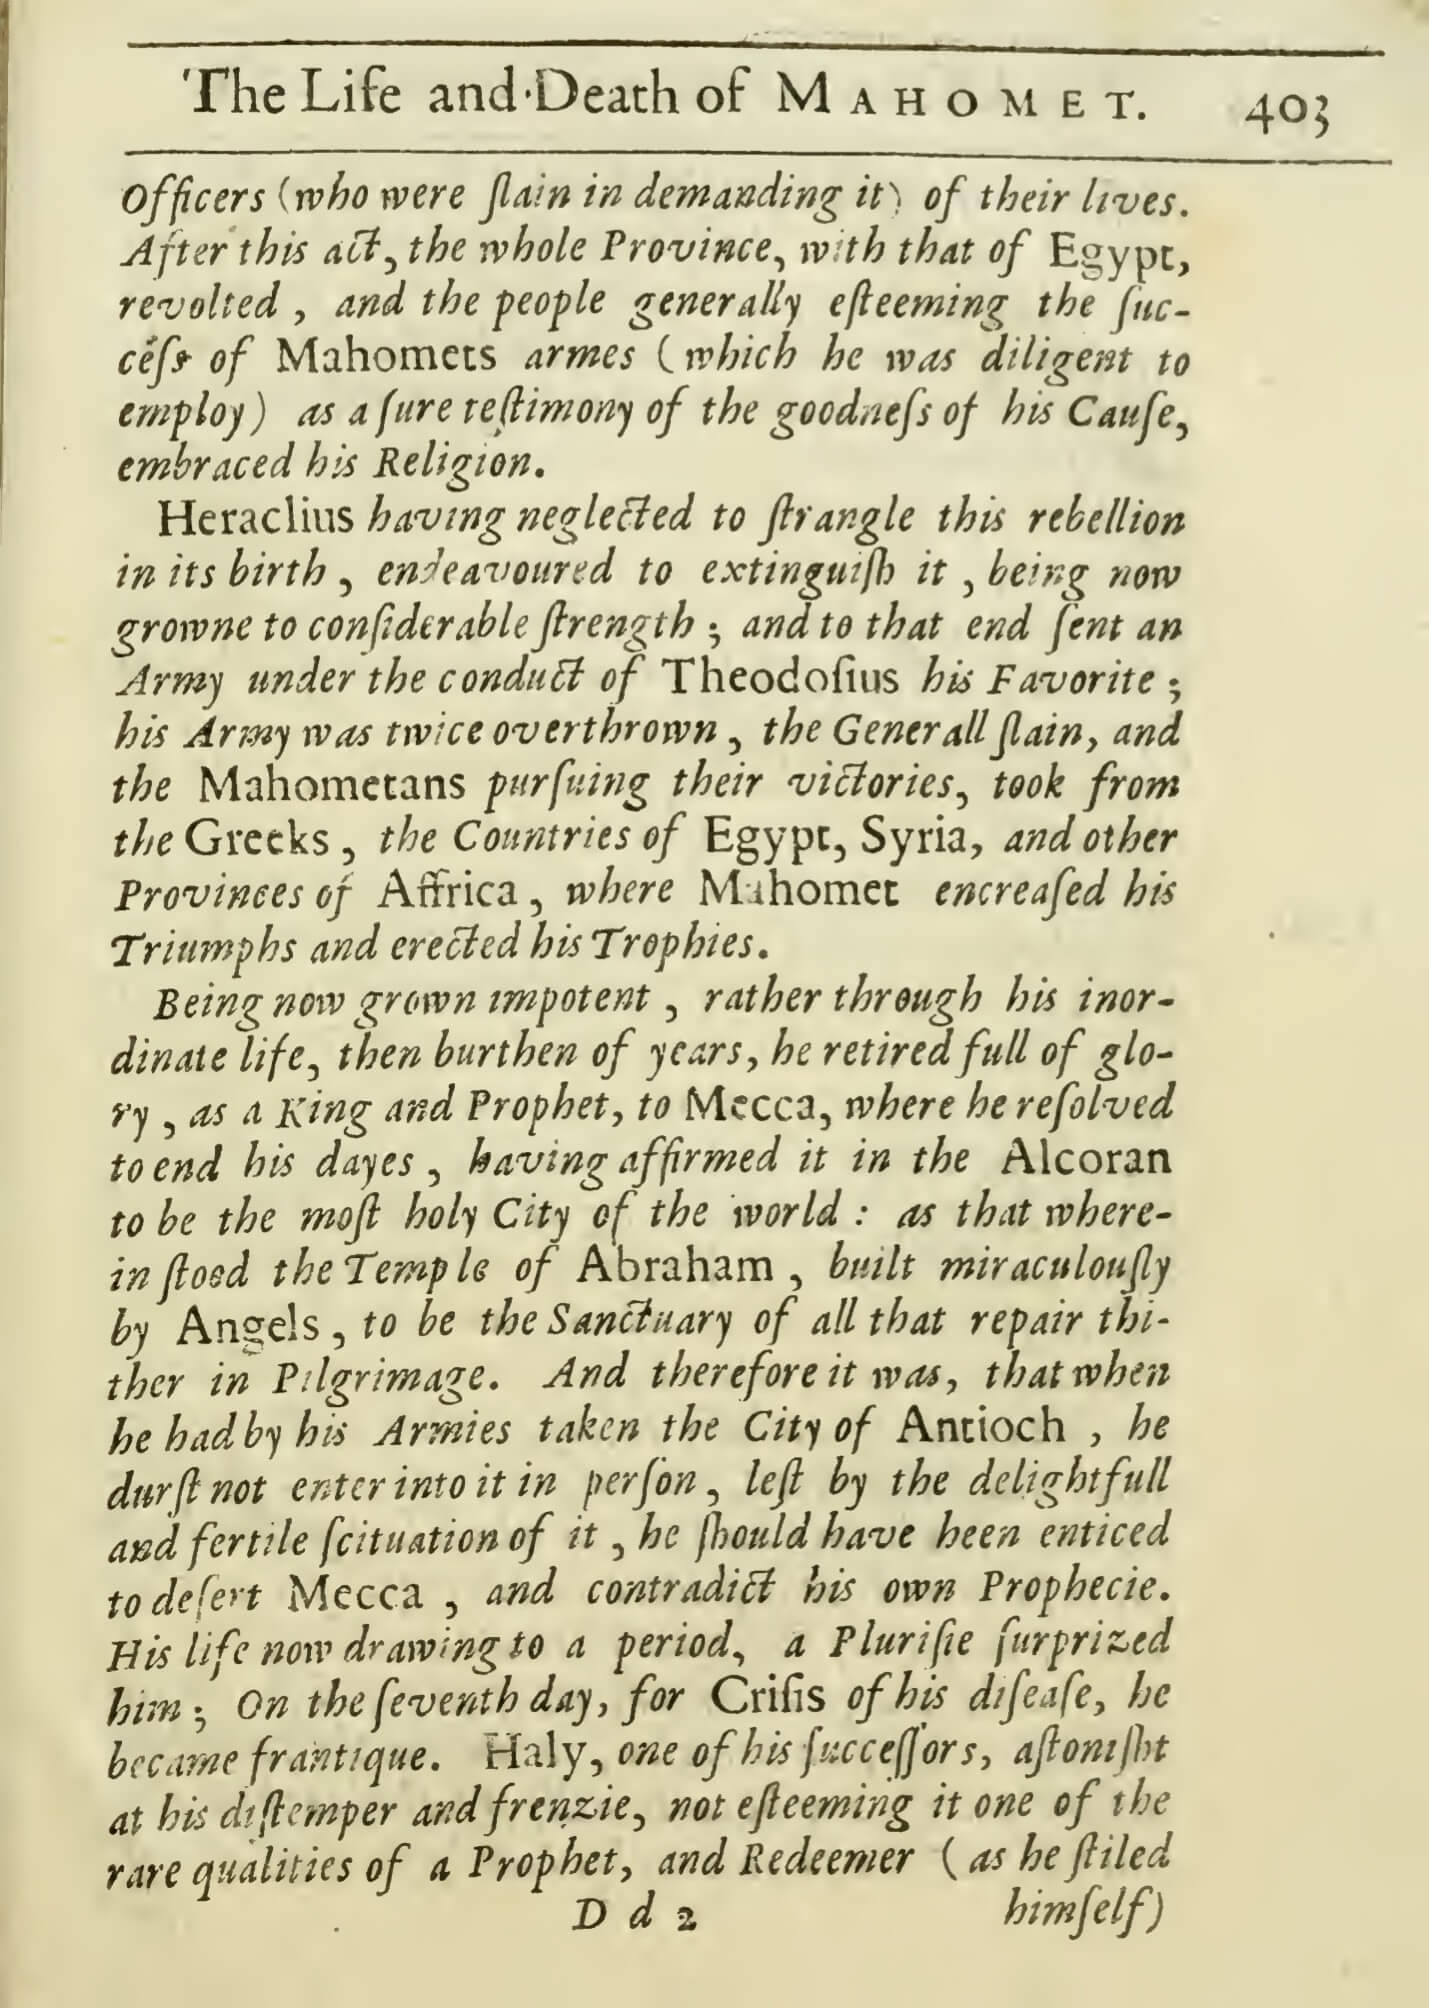 The Life and Death of MAHOMET. 403
Officers (who were ſlain in demanding it) of their lives.
After this act, the whole Province, with that of Egypt,
revolted, and the people generally eſteeming the ſuc-
ceſs of Mahomets armes (which he was diligent to
employ) as a ſure teſtimony of the goodneſs of his Cauſe,
embraced his Religion.
Heraclius having neglected to ſtrangle this rebellion
in its birth, endeavoured to extinguiſh it, being now
growne to conſiderable ſtrength; and to that end ſent an
Army under the conduct of Theodoſius his Favorite;
his Army was twice overthrown, the Generall ſlain, and
the Mahometans purſuing their victories, took from
the Greeks, the Countries of Egypt, Syria, and other
Provinces of Affrica, where Mahomet encreaſed his
Triumphs and erected his Trophies.
Being now grown impotent, rather through his inor-
dinate life, then burthen of years, he retired full of glo-
ry, as a King and Prophet, to Mecca, where he reſolved
to end his dayes, having affirmed it in the Alcoran
to be the moſt holy City of the world: as that where-
in ſtood the Temple of Abraham, built miraculouſly
by Angels, to be the Sanctuary of all that repair thi-
ther in Pilgrimage. And therefore it was, that when
he had by his Armies taken the City of Antioch, he
durſt not enter into it in perſon, leſt by the delightfull
and fertile ſcituation of it, he ſhould have been enticed
to deſert Mecca, and contradict his own Prophecie.
His life now drawing to a period, a Pluriſie ſurprized
him; On the ſeventh day, for Criſis of his diſeaſe, he
became frantique. Haly, one of his ſucceſſors, aſtoniſht
at his diſtemper and frenzie, not eſteeming it one of the
rare qualities of a Prophet, and Redeemer (as he ſtiled
D d 2 himſelf)